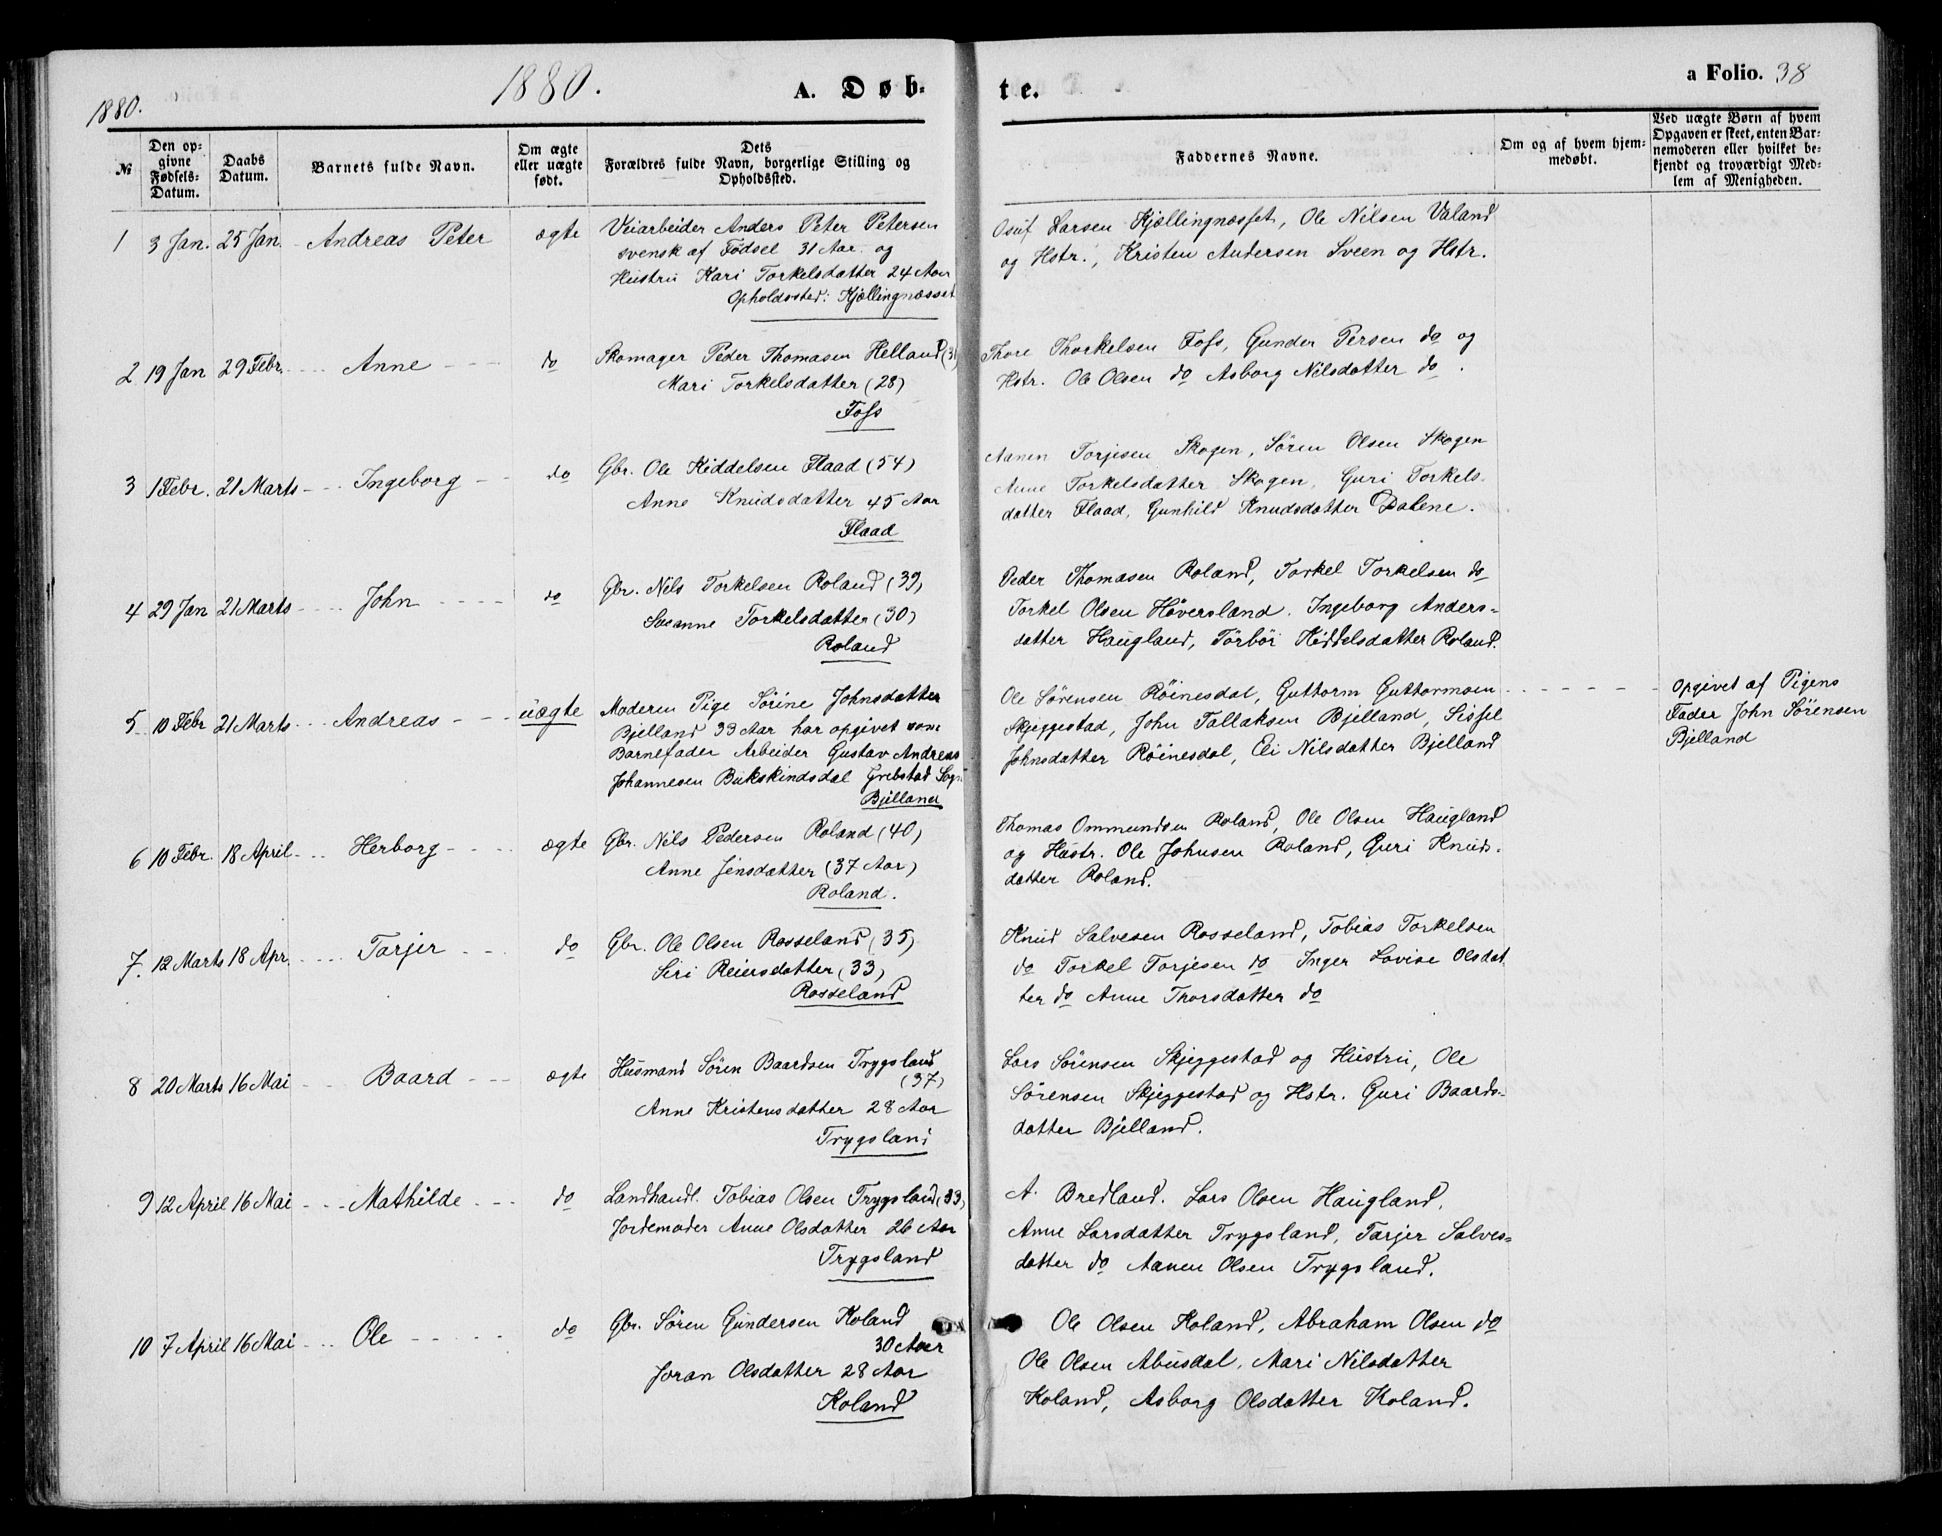 1880.
1880. A. Døb-
te.
a Folio. 38
№
Den op-
givne
Fødsels-
Datum.
Daabs
Datum.
Barnets fulde Navn.
Om ægte
eller uægte
født.
Dets
Forældres fulde Navn, borgerlige Stilling og
Opholdssted.
Faddernes Navne.
Om og af hvem hjem-
medøbt.
Ved uægte Børn af hvem
Opgaven er skeet, enten Bar-
nemoderen eller hvilket be-
kjendt og troværdigt Med-
lem af Menigheden.
1 3 Jan. 25 Jan. Andreas Peter ægte
Veiarbeider Anders Peter Petersen
svensk af Fødsel 31 Aar og
Hustru Kari Torkelsdatter 24 Aar
Opholdssted: Kjællingnæsset
Osuf Larsen Kjællingnæsset, Ole Nilsen Valand
og Hstr., Kristen Andersen Sveen og Hstr.
2 19 Jan 29 Febr. Anne do
Skomager Peder Thomasen Helland (31
Mari Torkelsdatter (28)
Foss
Thore Thorkelsen Foss, Gunder Persen do og
Hstr. Ole Olsen do Asborg Nilsdatter do.
3 1 Febr. 21 Marts Ingeborg do
Gbr. Ole Kiddelsen Flaad (54)
Anne Knudsdatter 45 Aar
Flaad
Aanen Torjesen Skogen, Sören Olsen Skogen
Anne Torkelsdatter Skogen, Guri Torkels-
datter Flaad, Gunhild Knudsdatter Dalene.
4 29 Jan 21 Marts John do
Gbr. Nils Torkelsen Roland (39)
Susanne Torkelsdatter (30)
Roland
Peder Thomasen Roland, Torkel Torkelsen do
Torkel Olsen Höversland. Ingeborg Anders-
datter Haugland, Törbör Kiddelsdatter Roland.
5 10 Febr 21 Marts Andreas uægte
Moderen Pige Sörine Johnsdatter
Bjelland 33 Aar har opgivet som
Barnefader Arbeider Gustav Andreas
Johannesen Bukskindsdal Grebstad Sogn
Bjelland
Ole Sörensen Röinesdal, Guttorm Guttormsen
Skjeggestad, John Tallaksen Bjelland, Sissel
Johnsdatter Röinesdal, Eli Nilsdatter Bjelland
Opgivet af Pigens
Fader John Sörensen
Bjelland
6 10 Febr. 18 April Herborg ægte
Gbr. Nils Pedersen Roland (40)
Anne Jensdatter (37 Aar)
Roland.
Thomas Ommundsen Roland, Ole Olsen Haugland
og Hustr. Ole Johnsen Roland, Guri Knuds-
datter Roland.
7. 12 Marts 18 Apr. Tarjer do
Gbr. Ole Olsen Rosseland (35)
Siri Reiersdatter (33)
Rosseland
Knud Salvesen Rosseland, Tobias Torkelsen
do Torkel Torjesen do Inger Lovise Olsdat
ter do Anne Thorsdatter do
8 20 Marts 16 Mai Baard ægte
Husmand Sören Baardsen Trygsland
(37)
Anne Kristensdatter 28 Aar
Trygsland
Lars Sörensen Skjeggestad og Hustru, Ole
Sörensen Skjeggestad og Hstr. Guri Baards-
datter Bjelland.
9 12 April 16 Mai Mathilde do
Landhandl. Tobias Olsen Trygsland (33)
Jordemoder Anne Olsdatter 26 Aar
Trygsland
A. Bredland. Lars Olsen Haugland,
Anne Larsdatter Trygsland, Tarjer Salves-
datter do Aanen Olsen Trygsland.
10 7 April 16 Mai Ole do
Gbr. Sören Gundersen Koland
30 Aar
Joran Olsdatter 28 Aar
Koland
Ole Olsen Koland, Abraham Olsen do
Ole Olsen Abusdal, Mari Nilsdatter
Koland, Asborg Olsdatter Koland.